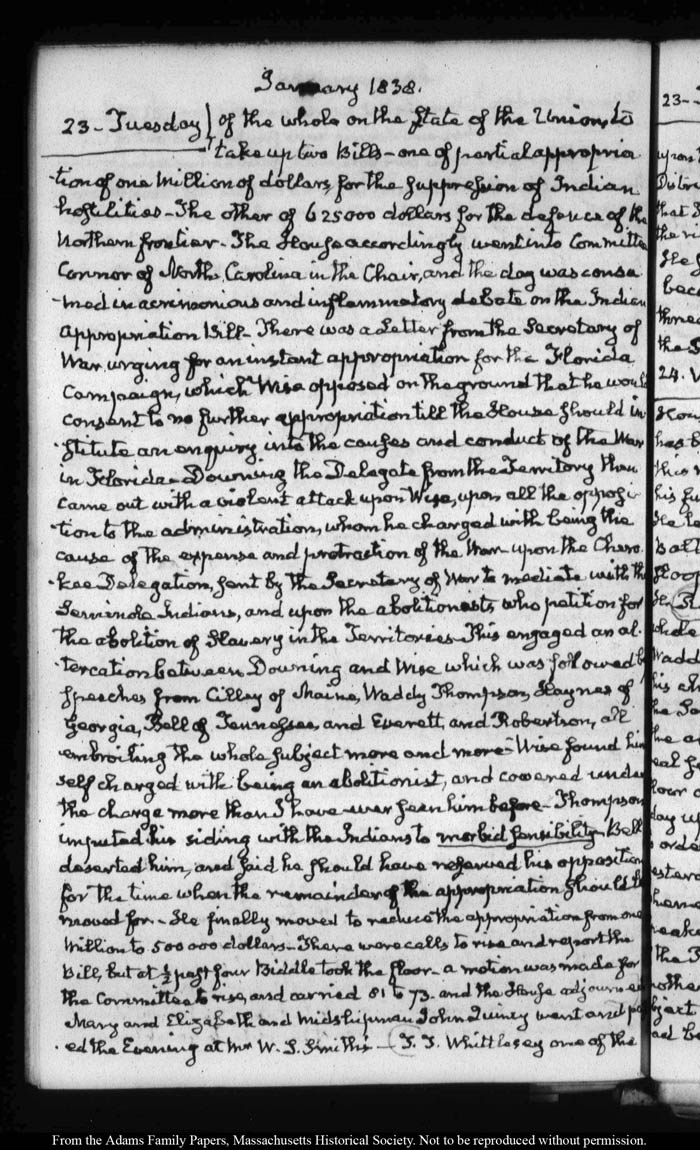 January 1838.
23- Tuesday of the whole on the state of the Union, to
take up two Bills- one of partial appropria
tion of one Million of dollars, for the suppression of Indian
hostilities- The other of 625000 dollars for the defence of the
Northern frontier- The House accordingly went into Committe
Connor of North Carolina in the Chair, and the day was consu
-med in acrimonious and inflammatory debate on the Indian
appropriation Bill- There was a Letter from the Secretary of
War, urging for an instant appropriation for the Florida
Campaign, which Wise opposed on the ground that he would
consent to no further appropriation till the House should in
-stitute an enquiry into the causes and conduct of the War
in Florida- Downing the Delegate from the Territory then
came out with a violent attack upon Wise, upon all the opposi-
-tion to the administration, whom he charged with being the
cause of the expense and protraction of the War upon the Chero
-kee Delegation, sent by the Secretary of War to mediate with the
Seminole Indians, and upon the abolitionists who petition for
the abolition of Slavery in the Territories- This engaged an al-
-tercation between Downing and Wise which was followed by
speeches from Cilley of Maine, Waddy Thompson, Haynes of
Georgia, Bell of Tennessee, and Everett, and Robertson, all
embroiling the whole subject more and more- Wise found him
self charged with being an abolitionist, and cowered under
the charge more than I have ever seen him before- Thompson
imputed his siding with the Indians to morbid sensibility. Bell
deserted him, and said he should have reserved his opposition
for the time when the remainder of the appropriation should be
moved for- He finally moved to reduce the appropriation from one
Million to 500 000 dollars- There were calls to rise and report the
Bill, but at ½ past four Biddle took the floor- a motion was made for
the Committee to rise, and carried 81 to 73. and the House adjourned
Mary and Elizabeth and Midshipman John Quincy went and pass
-ed the Evening at Mr W. S. Smith's- T. T. Whittlesey one of the
23-
24.
From the Adams Family Papers, Massachusetts Historical Society. Not to be reproduced without permission.